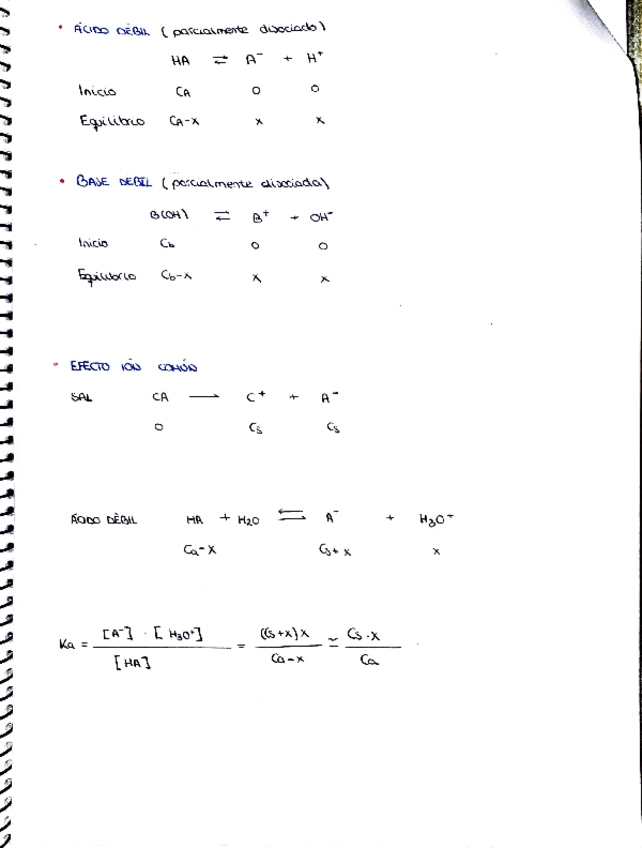 • ÁCIDO DÉBIL (parcialmente disociado)
HA ⇌ A⁻ + H⁺
Inicio CA 0 0
Equilibrio CA-x x x
• BASE DÉBIL (parcialmente disociada)
B(OH) ⇌ B⁺ + OH⁻
Inicio Cb 0 0
Equilibrio Cb-x x x
• EFECTO IÓN COMÚN
SAL CA ⟶ C⁺ + A⁻
0 Cs Cs
ÁCIDO DÉBIL HA + H2O ⇌ A⁻ + H3O⁺
Ca-x Cs+x x
Ka = [A⁻] · [H3O⁺] / [HA] = (Cs+x)x / Ca-x ≃ Cs·x / Ca